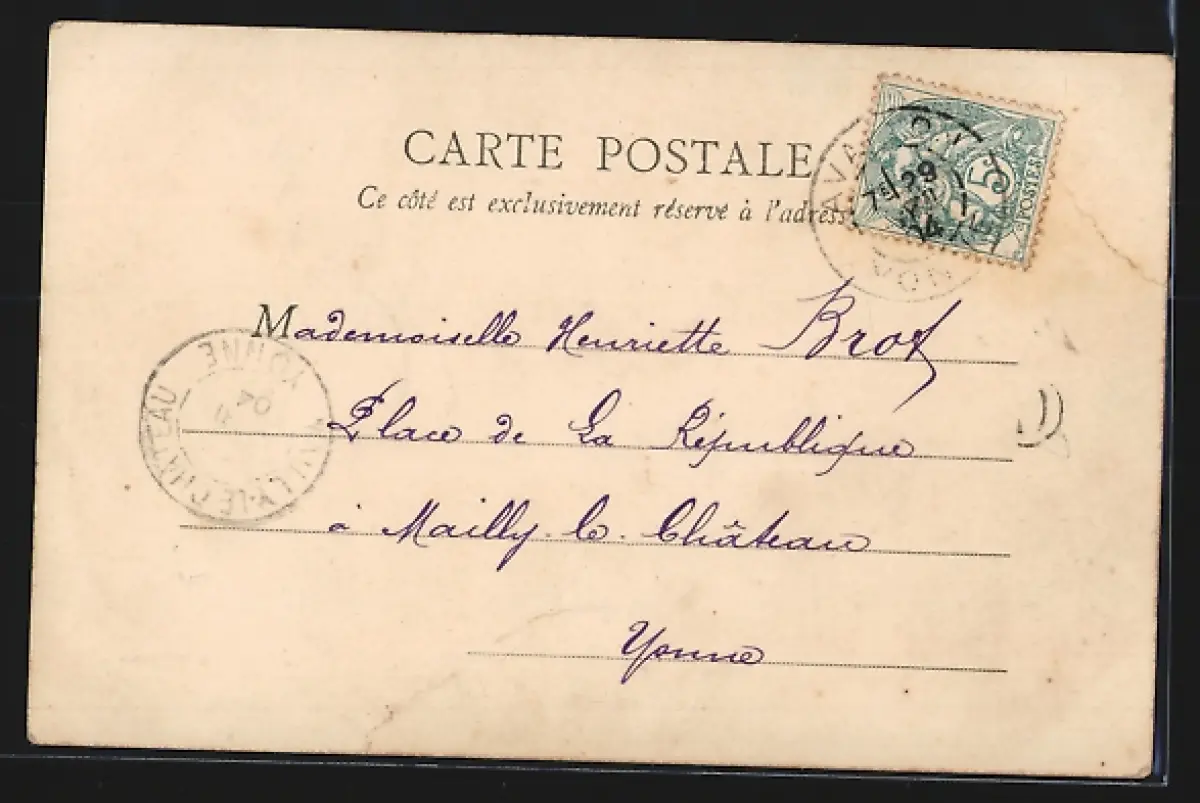 CARTE POSTALE
Ce côté est exclusivement réservé à l'adresse
AVALLON
7E 29
YONNE
5
POSTES
Mademoiselle Henriette Brot
Place de La République
à Mailly-le-Château
Yonne
MAILLY-LE-CHATEAU
YONNE
04